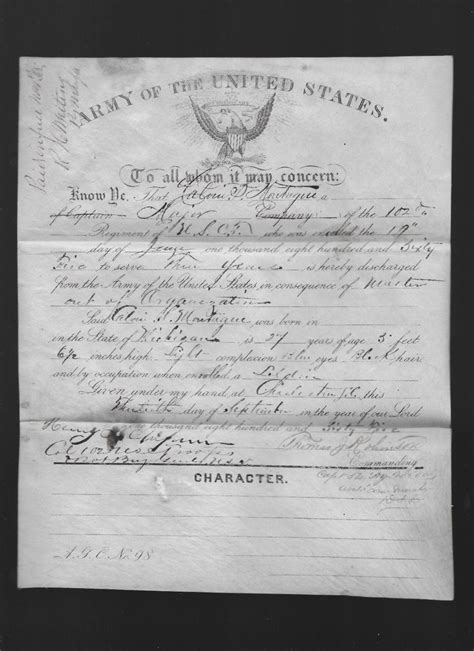 Paid in full
ARMY OF THE UNITED STATES.
To all whom it may concern:
Know Ye, That Calvin S Montague a
of Captain Major Company of the 102nd
Regiment of U.S.C.T. who was enrolled the 19th
day of June one thousand eight hundred and Sixty
Five to serve Three Years is hereby discharged
from the Army of the United States in consequence of Muster
out of Organization
Said Calvin S. Montague was born in
in the State of Michigan is 27 years of age 5 feet
6½ inches high Light complexion Blue eyes Black hair
and by occupation when enrolled a Soldier
Given under my hand at Charleston S.C. this
Thirtieth day of September in the year of our Lord
one thousand eight hundred and Sixty Five
Henry L Chipman
Col 102nd U.S. C. Troops
Thomas
Commanding
CHARACTER.
A.G.O. No. 98